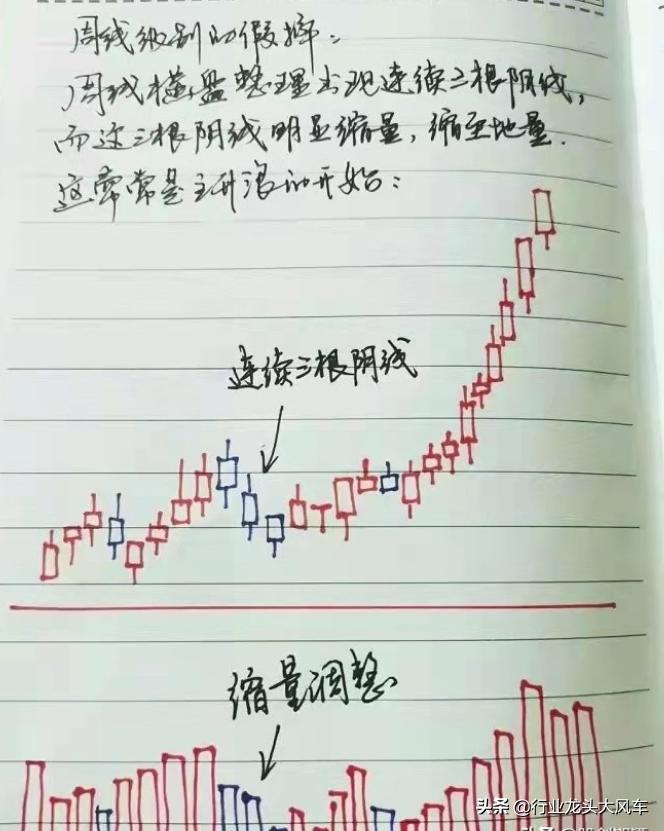 周线级别的假摔。
周线横盘整理出现连续三根阴线,
而这三根阴线明显缩量,缩至地量.
这常常是主升浪的开始:
连续三根阴线
缩量调整
头条 @行业龙头大风车